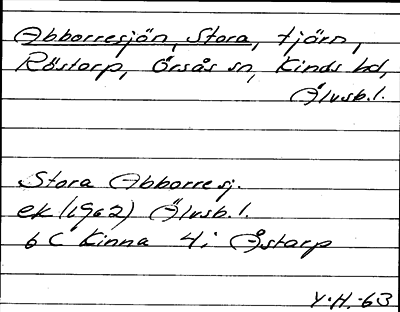 Abborresjön, Stora, tjärn,
Röstorp, Örsås sn, Kinds hd,
Älvsb.l.
Stora Abborresj.
ek (1962) Älvsb.l.
6 C Kinna 4i Åstarp
Y.H.-63